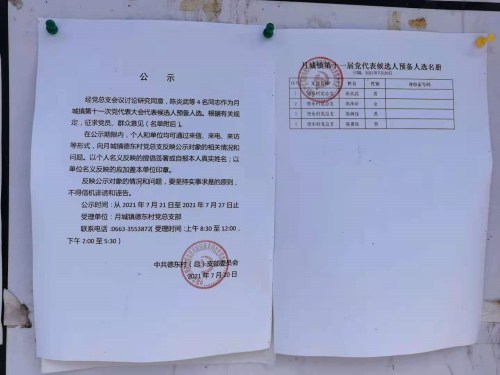 公　示
经党总支会议讨论研究同意，陈炎武等4名同志作为月
城镇第十一次党代表大会代表候选人预备人选。根据有关规
定，征求党员、群众意见（名单附后）。
在公示期限内，个人和单位均可通过来信、来电、来访
等形式，向月城镇德东村党总支反映公示对象的相关情况和
问题。以个人名义反映的提倡签署或自报本人真实姓名；以
单位名义反映的应加盖本单位印章。
反映公示对象的情况和问题，要坚持实事求是的原则，
不得借机诽谤和诬告。
公示时间：从2021年7月21日至2021年7月27日止
受理单位：月城镇德东村党总支部
联系电话：0663-3553872（受理时间：上午8:30至12:00，
下午2:00至5:30）
中共德东村（总）支部委员会
2021年7月20日
月城镇第十一届党代表候选人预备人选名册
日期：2021年7月20日
姓名 性别 身份证号码
1 德东村党总支 男
2 德东村党总支 女
3 德东村党总支
4 德东村党总支